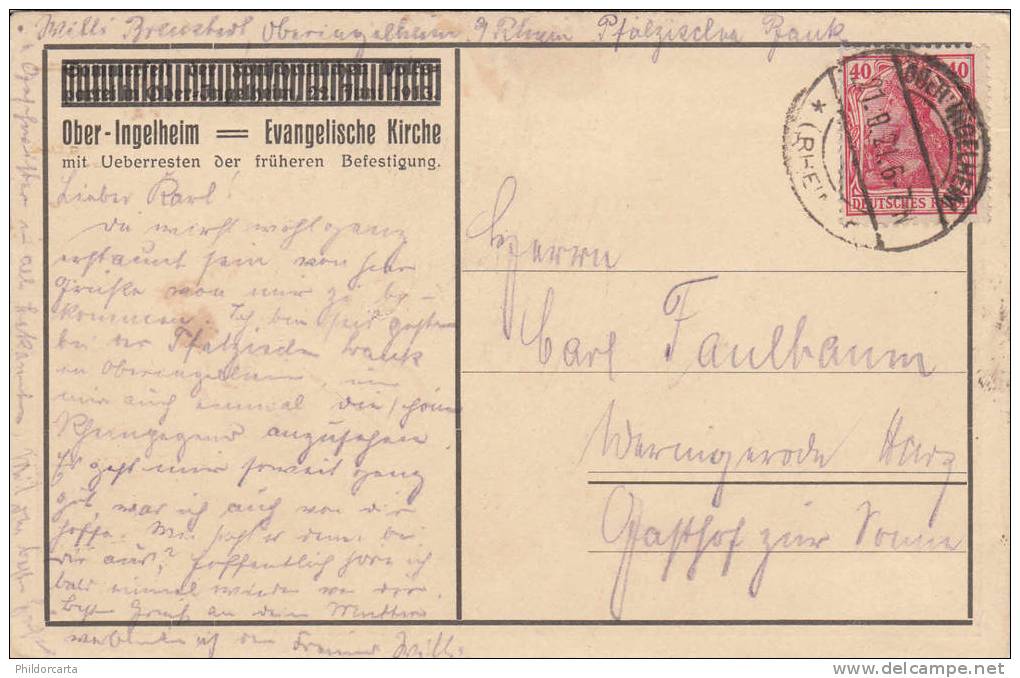 Willi Oberingelheim a/Rhein Pfälzische Bank
Sommerfest der fortschrittlichen Volks-
partei in Ober-Ingelheim, 22. Juni 1913.
Ober-Ingelheim = Evangelische Kirche
mit Ueberresten der früheren Befestigung.
Lieber Karl!
Du wirst wohl ganz
erstaunt sein von hier
Grüße von mir zu be-
kommen. Ich bin seit gestern
bei der Pfälzischen Bank
in Oberingelheim, um
mir auch einmal die schöne
Rheingegend anzusehen.
Es geht mir soweit ganz
gut, was ich auch von dir
hoffe. Wie sieht es denn bei
dir aus? Hoffentlich höre ich
bald einmal wieder von dir.
Gruß an deine Mutter
Willi
40 40
DEUTSCHES REICH
OBER INGELHEIM
27.8.21.6-7N
* (RHEIN
Herrn
Carl Faulbaum
Werningerode Harz
Gasthof zur Sonne
Phildorcarta
delcampe.net